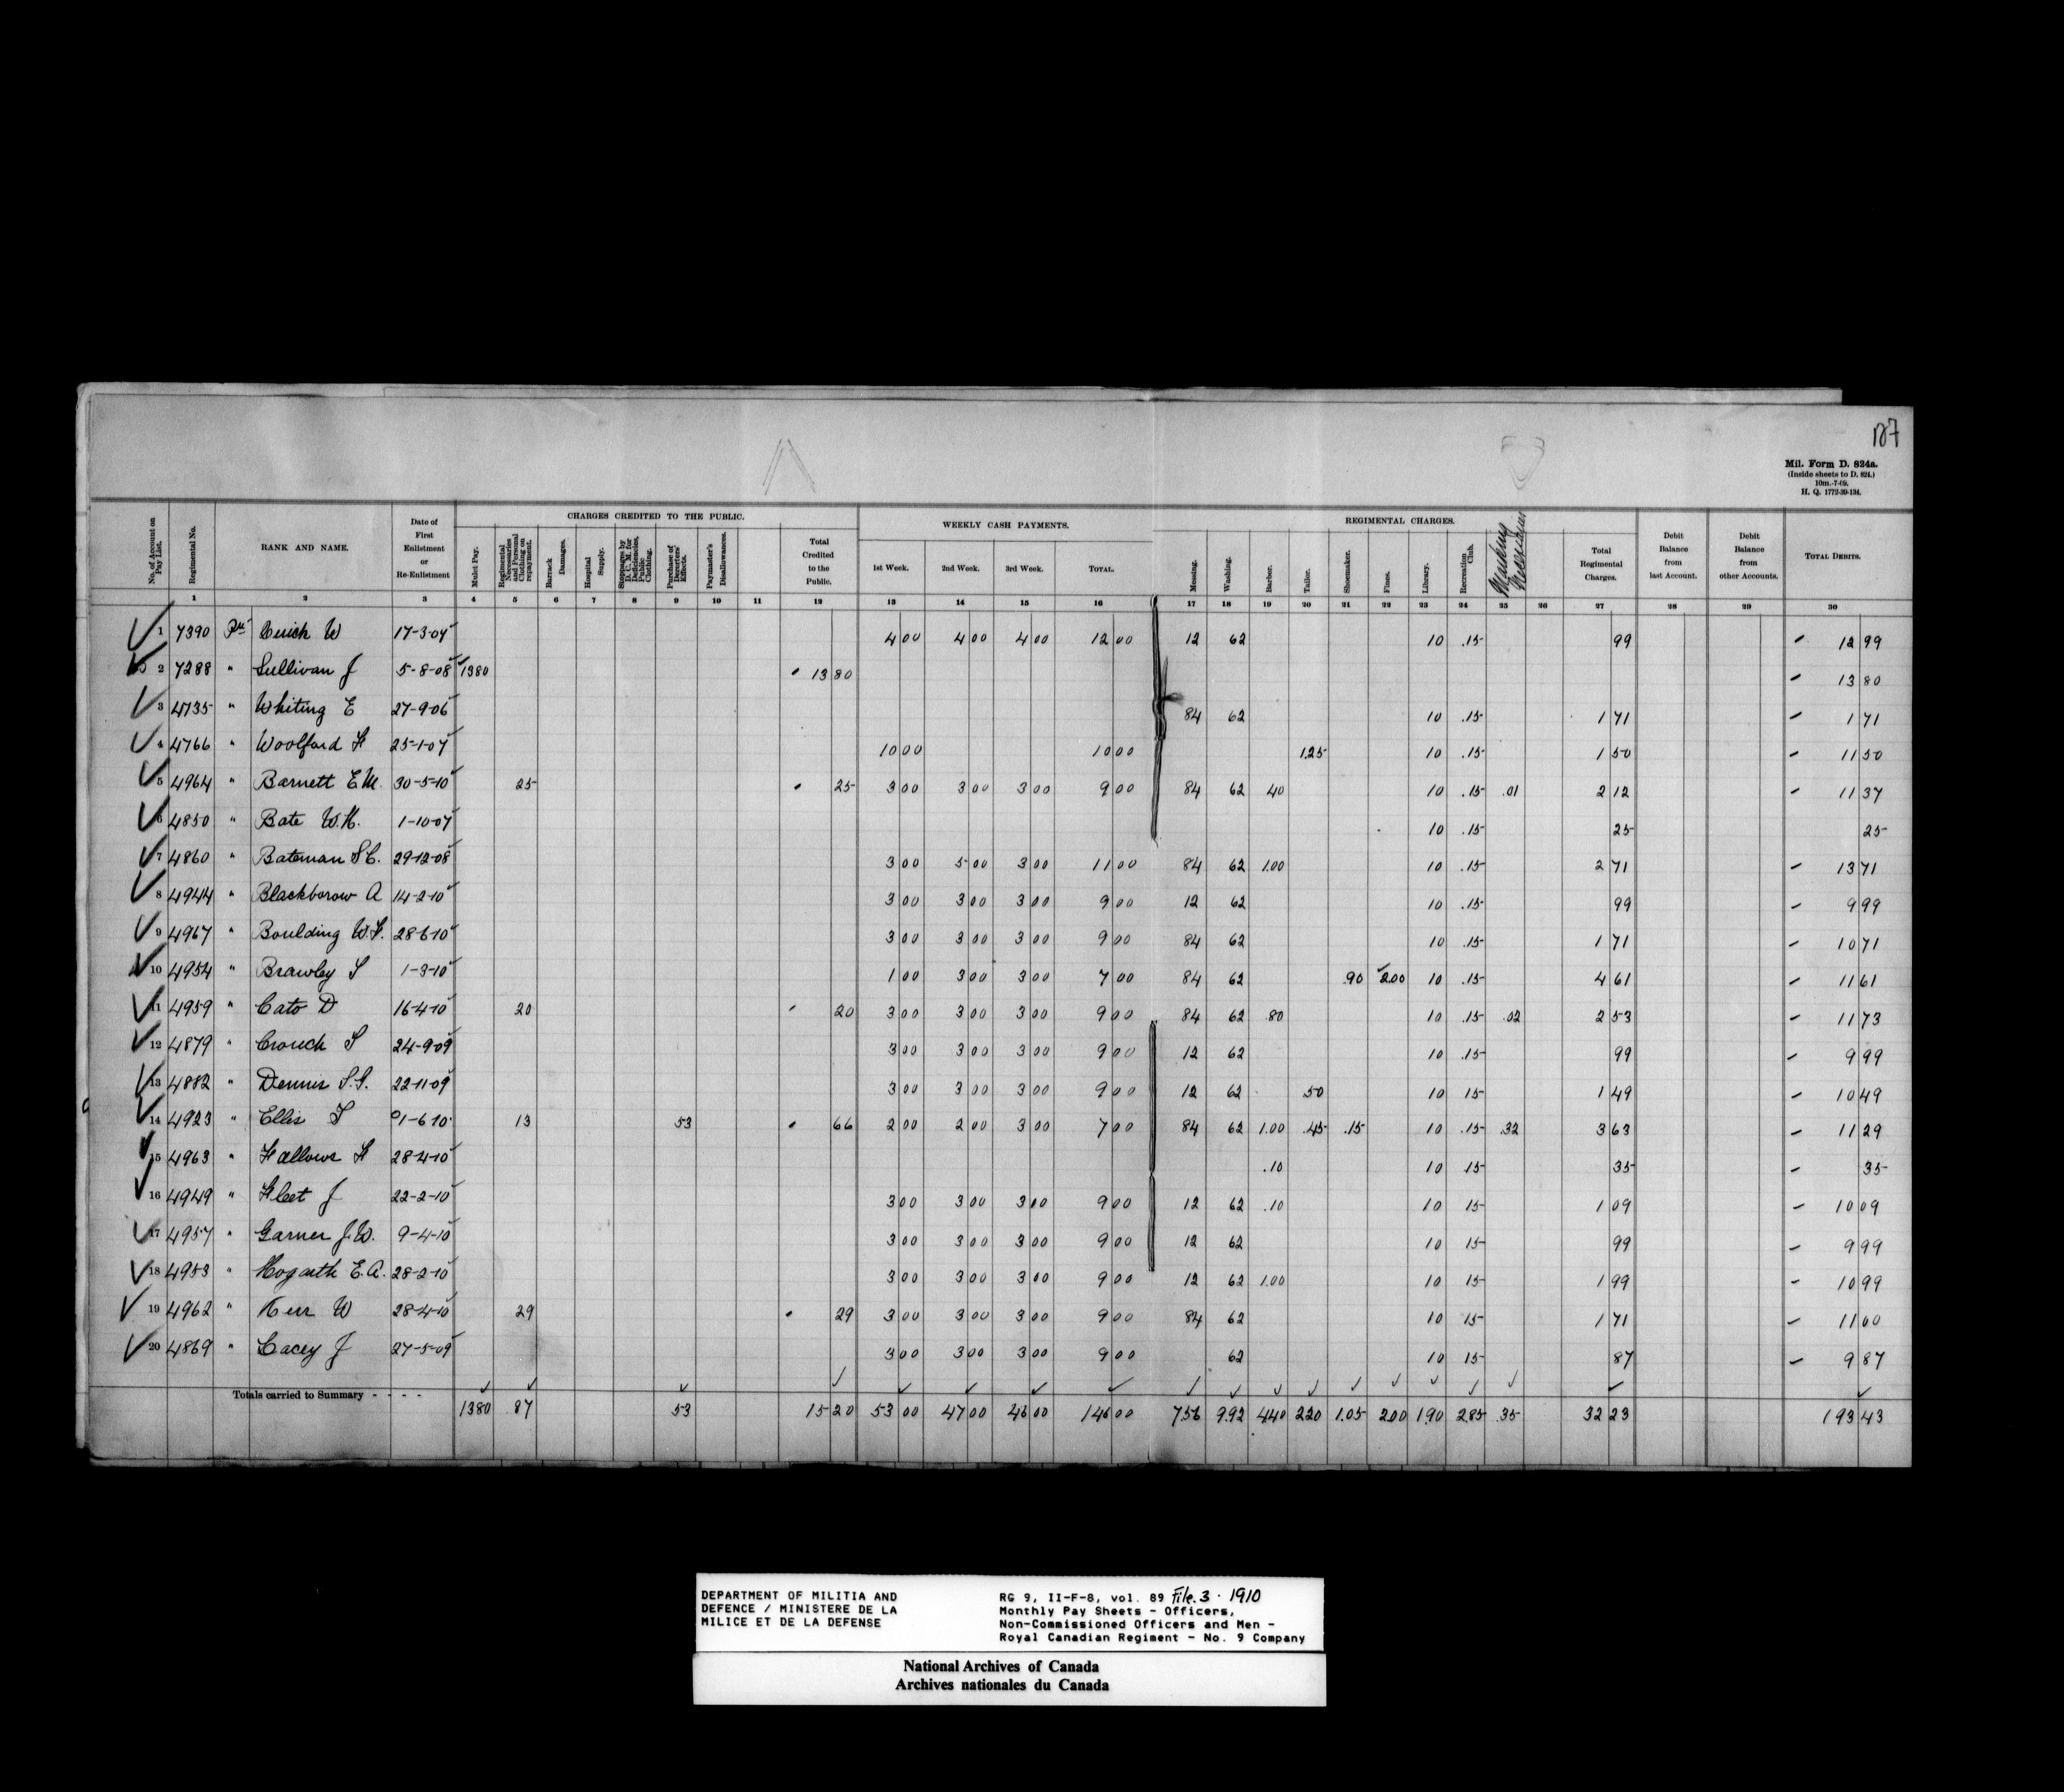 187
Mil. Form D. 824a.
(Inside sheets to D. 824.)
10m.-7-09.
H. Q. 1772-39-134.
No. of Account on Pay List. Regimental No. RANK AND NAME. Date of First Enlistment or Re-Enlistment CHARGES CREDITED TO THE PUBLIC. WEEKLY CASH PAYMENTS. REGIMENTAL CHARGES. Debit Balance from last Account. Debit Balance from other Accounts. TOTAL DEBITS.
Mulct Pay. Regimental Necessaries and Personal Clothing on repayment. Barrack Damages. Hospital Supply. Stoppages by D. C. M. for Deficiencies, Public Clothing. Purchase of Deserters' Effects. Paymaster's Disallowances. Total Credited to the Public. 1st Week. 2nd Week. 3rd Week. TOTAL. Messing. Washing. Barber. Tailor. Shoemaker. Fines. Library. Recreation Club. Total Regimental Charges.
1 2 3 4 5 6 7 8 9 10 11 12 13 14 15 16 17 18 19 20 21 22 23 24 25 26 27 28 29 30
1 7390 Pte W 17-3-04 4 00 4 00 4 00 12 00 12 62 10 .15 99 12 99
2 7288 " Sullivan J 5-8-08 1380 13 80 13 80
3 4735 " Whiting E 27-9-06 84 62 10 .15 1 71 1 71
4 4766 " Woolford F 25-1-07 10 00 10 00 1.25 10 .15 1 50 11 50
5 4964 " Barnett E.M. 30-5-10 25 25 3 00 3 00 3 00 9 00 84 62 40 10 .15 .01 2 12 11 37
6 4850 " Bate W.H. 1-10-07 10 .15 25 25
7 4860 " Bateman S.C. 29-12-08 3 00 5 00 3 00 11 00 84 62 1.00 10 .15 2 71 13 71
8 4944 " Blackborow A 14-2-10 3 00 3 00 3 00 9 00 12 62 10 .15 99 9 99
9 4967 " Boulding W.F. 28-6-10 3 00 3 00 3 00 9 00 84 62 10 .15 1 71 10 71
10 4954 " Brawley S 1-3-10 1 00 3 00 3 00 7 00 84 62 .90 2.00 10 .15 4 61 11 61
11 4959 " Cato D 16-4-10 20 20 3 00 3 00 3 00 9 00 84 62 .80 10 .15 .02 2 53 11 73
12 4879 " Crouch S 24-9-09 3 00 3 00 3 00 9 00 12 62 10 .15 99 9 99
13 4882 " Dennis S.S. 22-11-09 3 00 3 00 3 00 9 00 12 62 .50 10 15 1 49 10 49
14 4923 " Ellis 1-6-10 13 53 66 2 00 2 00 3 00 7 00 84 62 1.00 .45 .15 10 .15 .32 3 63 11 29
15 4963 " Fallows F 28-4-10 .10 10 15 35 35
16 4949 " Fleet J 22-2-10 3 00 3 00 3 00 9 00 12 62 .10 10 15 1 09 10 09
17 4957 " Garner J.W. 9-4-10 3 00 3 00 3 00 9 00 12 62 10 15 99 9 99
18 4953 " Hogarth E.A. 28-2-10 3 00 3 00 3 00 9 00 12 62 1.00 10 15 1 99 10 99
19 4962 " Kerr W 28-4-10 29 29 3 00 3 00 3 00 9 00 84 62 10 15 1 71 11 00
20 4869 " Lacey J 27-5-09 3 00 3 00 3 00 9 00 62 10 15 87 9 87
Totals carried to Summary - - - - 1380 87 53 15 20 53 00 47 00 46 00 146 00 7.56 9.92 4.40 2.20 1.05 2.00 1.90 2.85 .35 32 23 193 43
DEPARTMENT OF MILITIA AND
DEFENCE / MINISTERE DE LA
MILICE ET DE LA DEFENSE
RG 9, II-F-8, vol. 89 File. 3 · 1910
Monthly Pay Sheets - Officers,
Non-Commissioned Officers and Men -
Royal Canadian Regiment - No. 9 Company
National Archives of Canada
Archives nationales du Canada